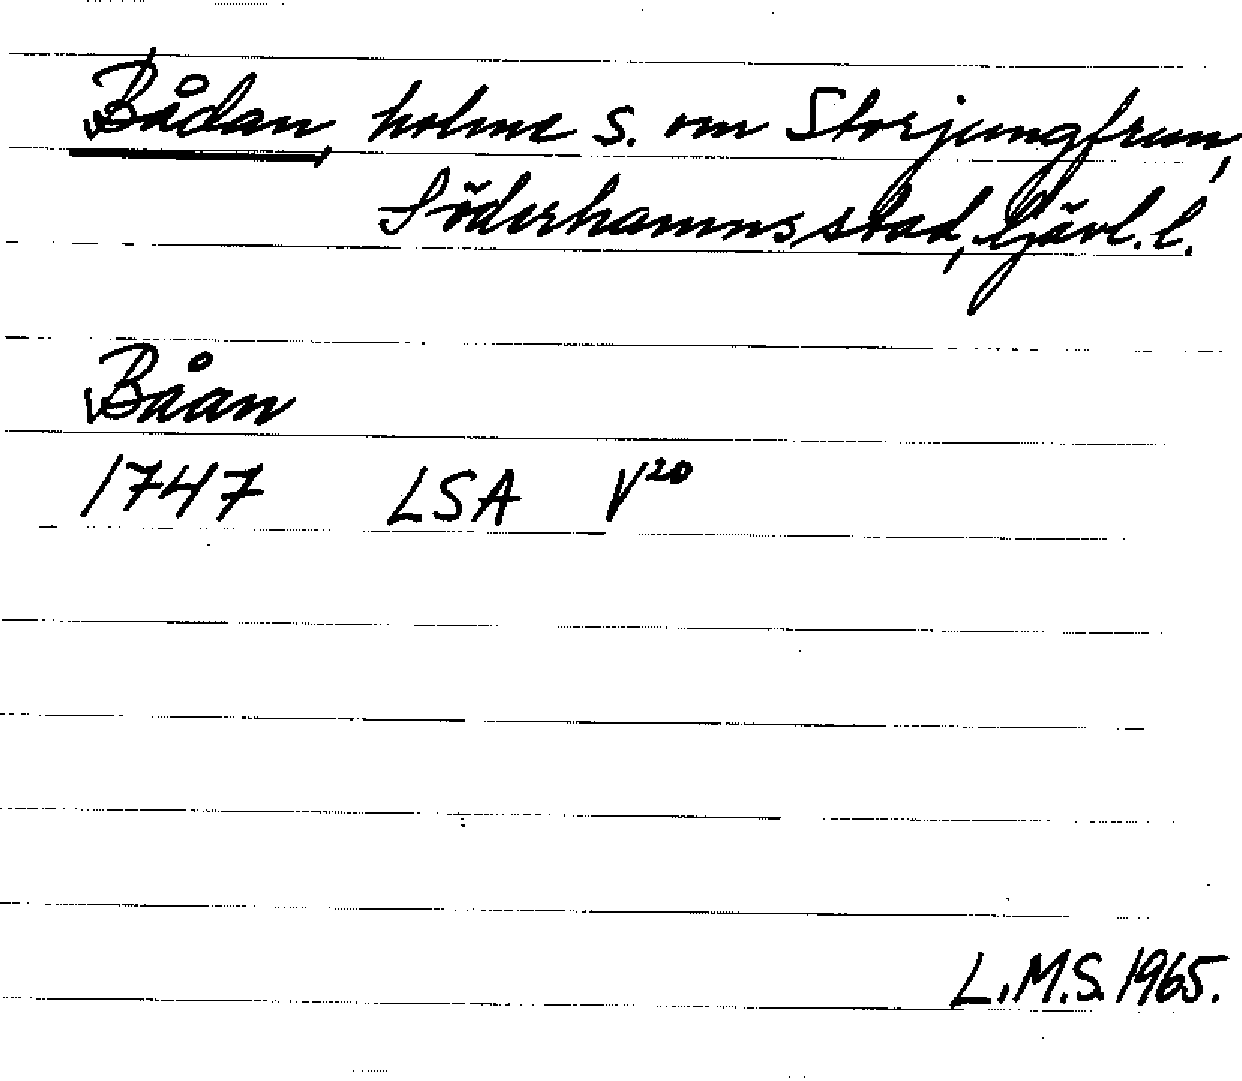 Bådan, holme S. om Storjungfrun,
Söderhamns stad, Gävl. l.
Båan
1747 LSA V20
L.M.S. 1965.